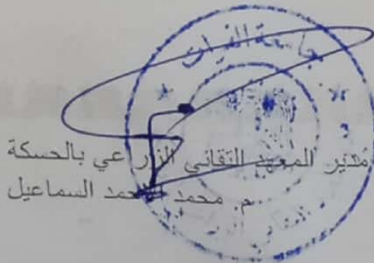 جامعة الفرات
مدير المعهد التقاني الزراعي بالحسكة
م. محمد المحمد السماعيل